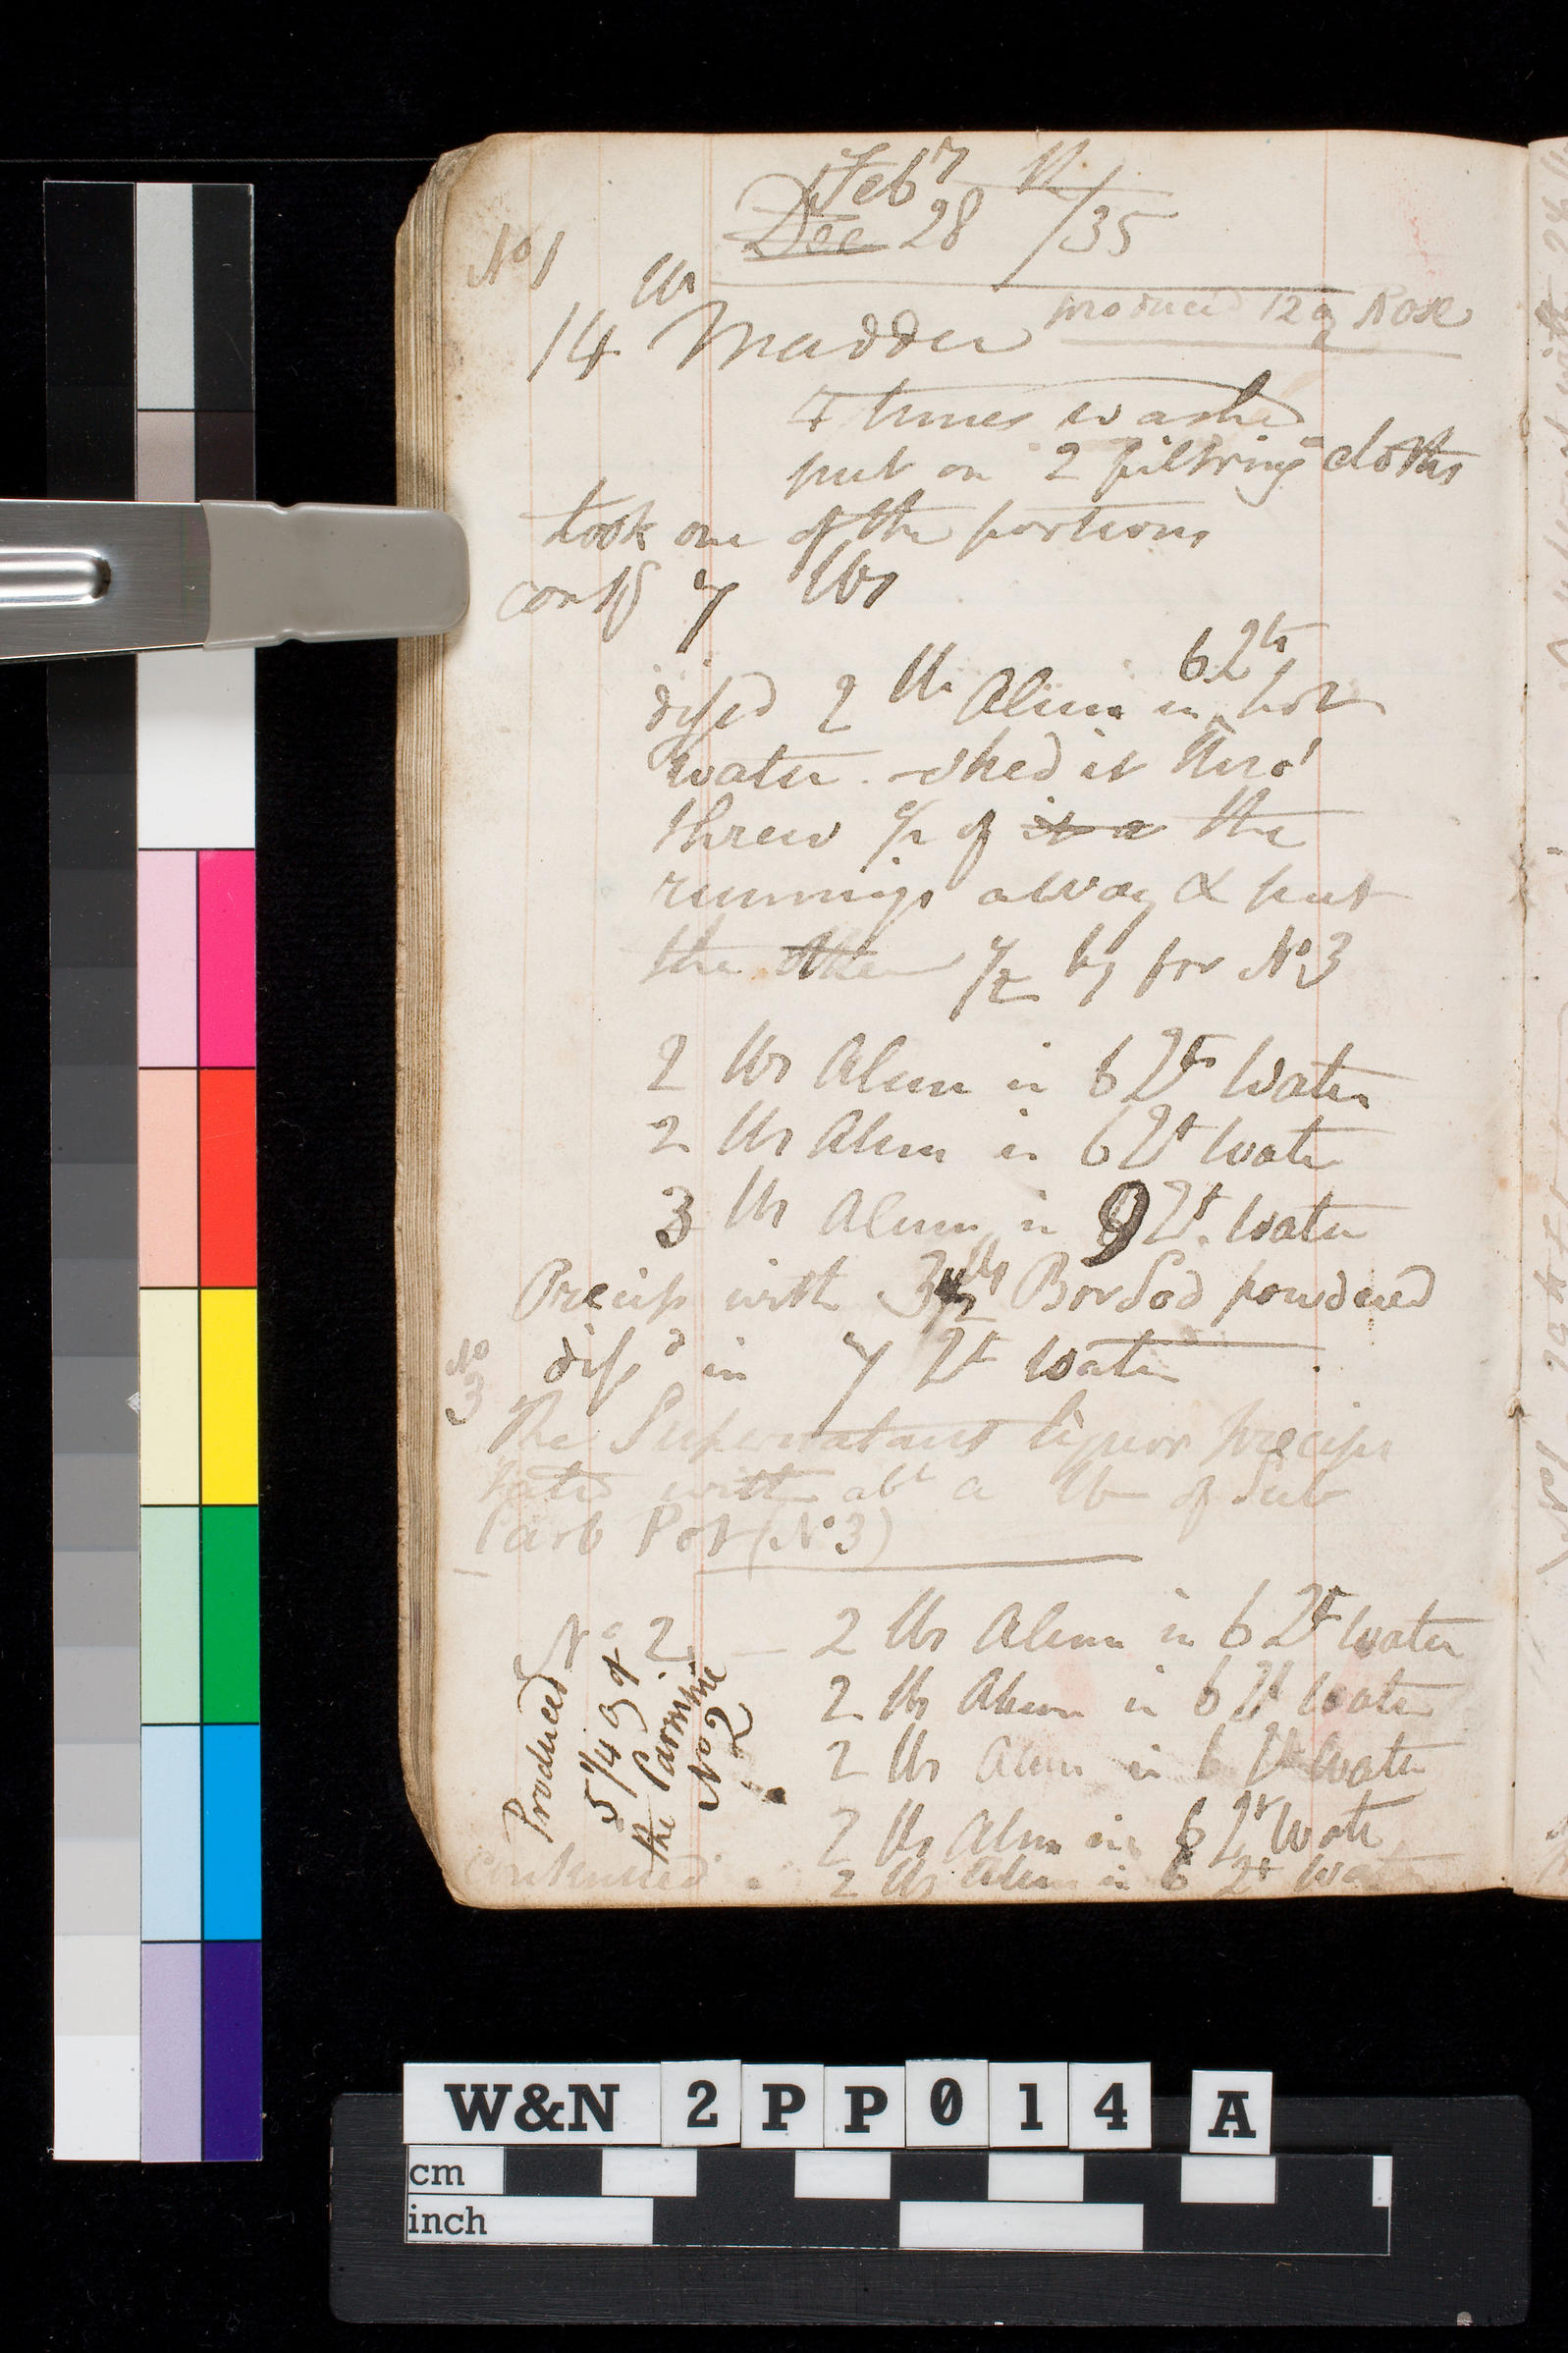 Feby
Dec 28 /35
No 1
lbs
14 Madder produced 12 oz Rose
4 times washed
put on 2 filtring cloths
took one of the portions
contg 7 lbs
dissd 2 lbs Alum in 6 Qts hot
water shed it thro'
threw 1/2 of it a the
runnings away & put
the other 1/2 by for No 3
2 lbs Alum in 6 Qts Water
2 lbs Alum in 6 Qt Water
3 lbs Alum in 9 Qt. Water
Precip with 3 1/2 lbs Bor Sod powdered
No 3
dissd in 7 Qt Water
The Supernatant liquor precipi
tated with abt a lb of Sub
Carb Pot (No 3)
No 2 — 2 lbs Alum in 6 Qt Water
2 lbs Alum in 6 Qt Water
2 lbs Alum in 6 Qt Water
2 lbs Alum in 6 Qt Wate
continued 2 lbs Alum in 6 Qt Water
Produced
5 1/4 of
the Carmine
No 2
W&N 2PP014 A
cm
inch